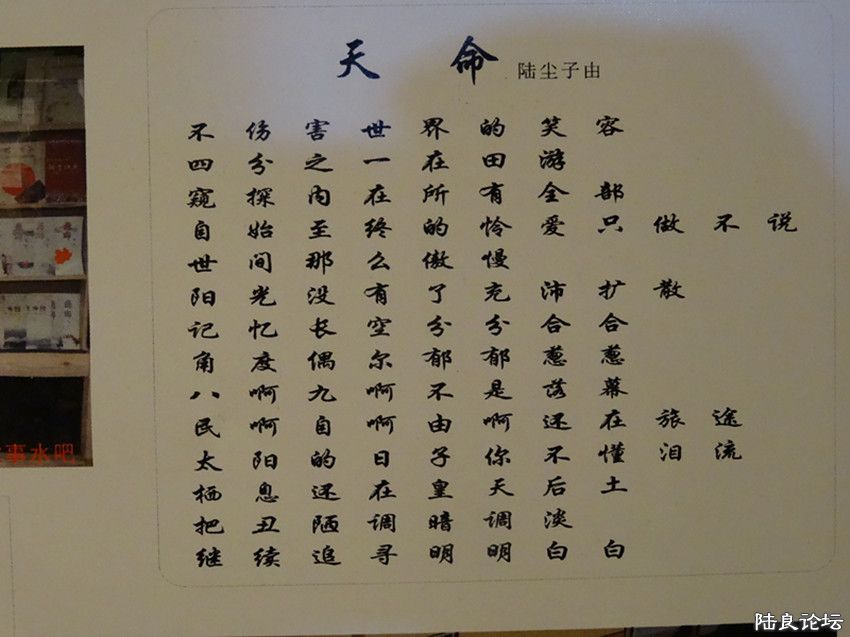 天命 陆尘子由
不伤害世界的笑容
四分之一在田游
窥探内在所有全部
自始至终的怜爱只做不说
世间那么傲慢
阳光没有了充沛扩散
记忆长空分分合合
角度偶尔郁郁葱葱
八啊九啊不是落幕
民啊自啊由啊还在旅途
太阳的日子你不懂泪流
栖息还在皇天后土
把丑陋调暗调淡
继续追寻明明白白
事水吧
陆良论坛